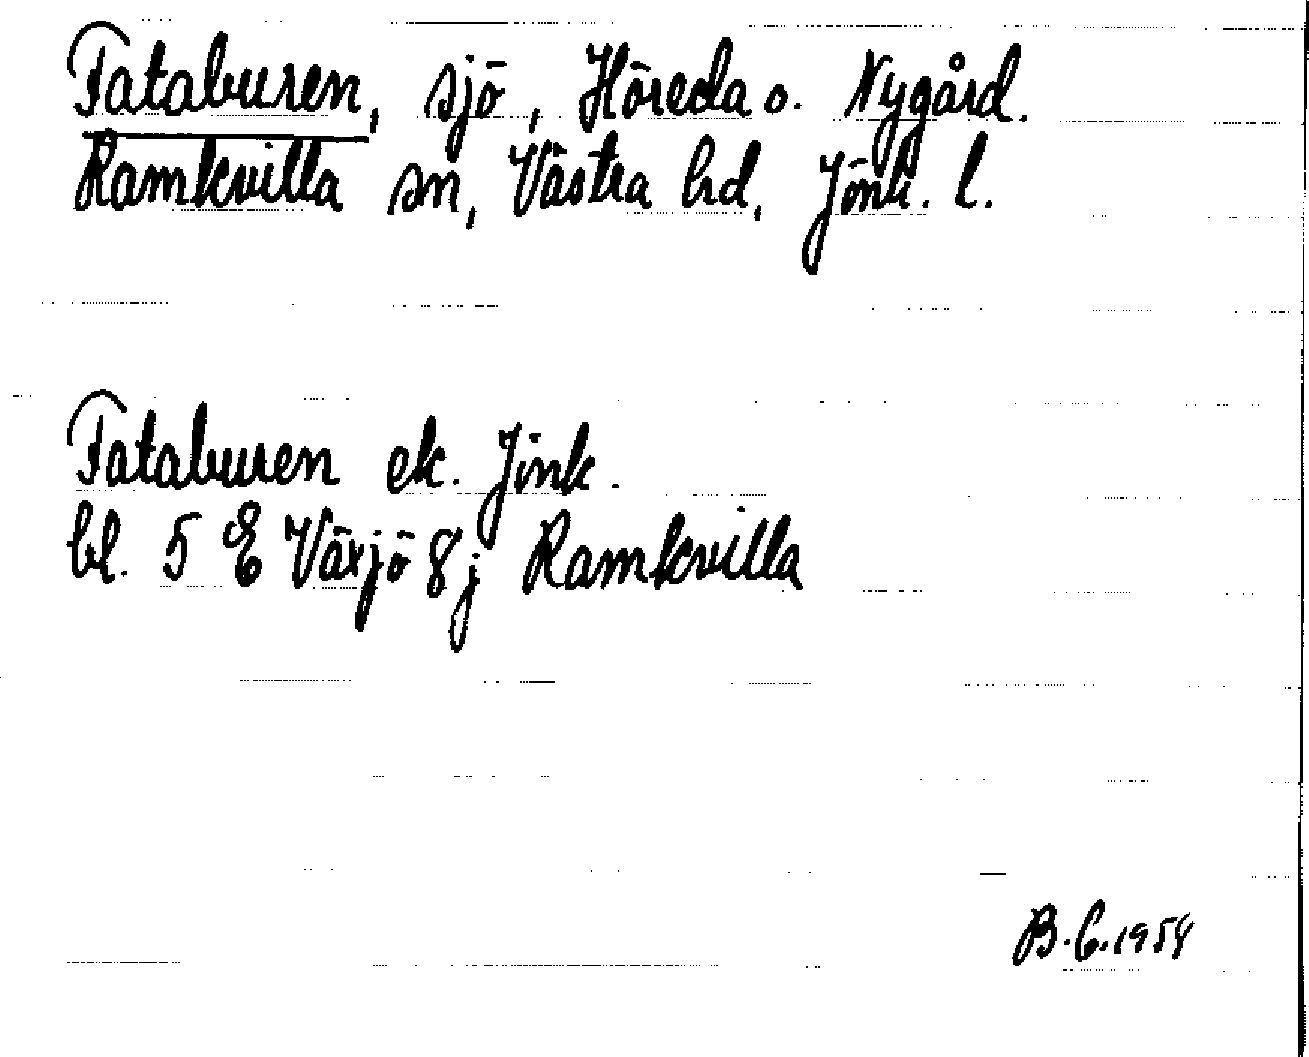 Fataburen, sjö, Höreda o. Nygård.
Ramkvilla sn, Västra hd, Jönk. l.
Fataburen ek. Jönk.
bl. 5 E Växjö 8j Ramkvilla
B.C.1954